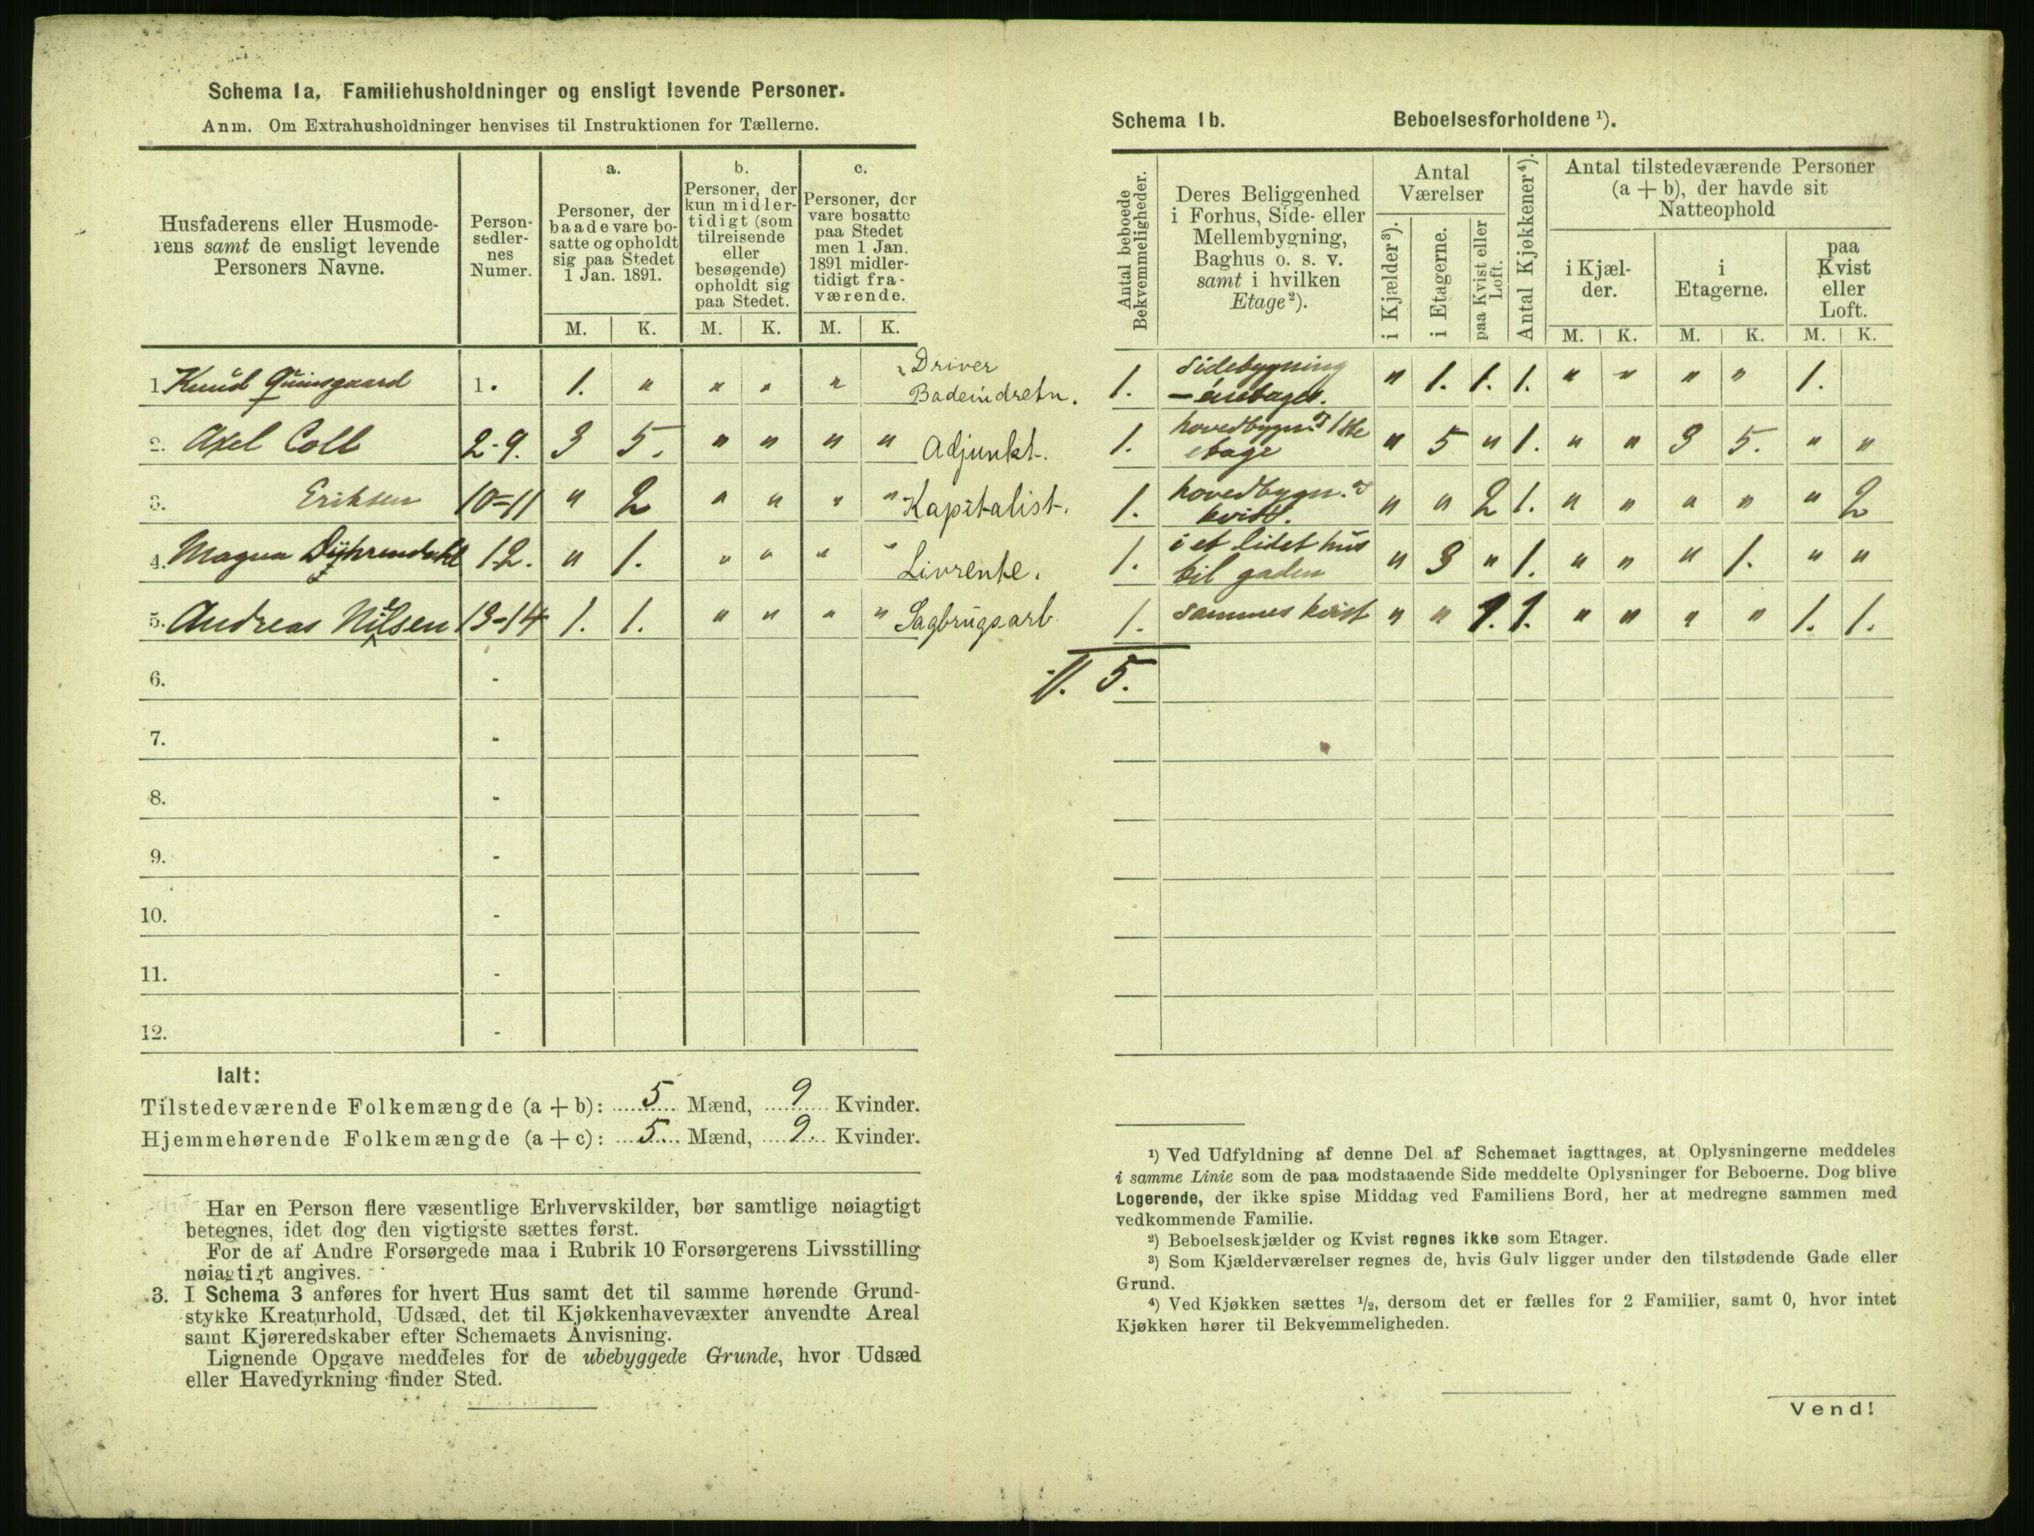 Schema 1a, Familiehusholdninger og ensligt levende Personer.
Anm. Om Extrahusholdninger henvises til Instruktionen for Tællerne.
Husfaderens eller Husmode-
rens samt de ensligt levende
Personers Navne.
Person-
sedler-
nes
Numer.
a.
Personer, der
baade vare bo-
satte og opholdt
sig paa Stedet
1 Jan. 1891.
b.
Personer, der
kun midler-
tidigt (som
tilreisende
eller
besøgende)
opholdt sig
paa Stedet.
c.
Personer, der
vare bosatte
paa Stedet
men 1 Jan.
1891 midler-
tidigt fra-
værende.
M. K. M. K. M. K.
1. Knud 1. 1. " " " " Driver
Badeindretn.
2. Axel Coll 2-9. 3 5. " " " " Adjunkt.
3. Eriksen 10-11 " 2 " " " " Kapitalist.
4. Magna Dührendahl 12. " 1. " " " " Livrente.
5. Andreas Nilsen 13-14 1. 1. " " " " Sagbrugsarb.
6. -
7. -
8. -
9. -
10. -
11. -
12. -
Ialt:
Tilstedeværende Folkemængde (a + b): 5 Mænd, 9 Kvinder.
Hjemmehørende Folkemængde (a + c): 5 Mænd, 9 Kvinder.
Har en Person flere væsentlige Erhvervskilder, bør samtlige nøiagtigt
betegnes, idet dog den vigtigste sættes først.
For de af Andre Forsørgede maa i Rubrik 10 Forsørgerens Livsstilling
nøiagtigt angives.
3. I Schema 3 anføres for hvert Hus samt det til samme hørende Grund-
stykke Kreaturhold, Udsæd, det til Kjøkkenhavevæxter anvendte Areal
samt Kjøreredskaber efter Schemaets Anvisning.
Lignende Opgave meddeles for de ubebyggede Grunde, hvor Udsæd
eller Havedyrkning finder Sted.
Schema 1b. Beboelsesforholdene ¹).
Antal beboede
Bekvemmeligheder.
Deres Beliggenhed
i Forhus, Side- eller
Mellembygning,
Baghus o. s. v.
samt i hvilken
Etage ²).
Antal
Værelser
i Kjælder ³).
i Etagerne.
paa Kvist eller
Loft.
Antal Kjøkkener ⁴).
Antal tilstedeværende Personer
(a + b), der havde sit
Natteophold
i Kjæl-
der.
i
Etagerne.
paa
Kvist
eller
Loft.
M. K. M. K. M. K.
1. sidebygning " 1. 1. 1. " " " " 1.
1. hovedbygn. 1ste
etage " 5 " 1. " " 3 5. " "
1. hovedbygn.
kvist. " " 2 1. " " " " " 2
1. i et lidet hus
til gaden " 3 " 1. " " " 1. " "
1. sammes kvist " " 1. 1. " " " " 1. 1.
5.
¹) Ved Udfyldning af denne Del af Schemaet iagttages, at Oplysningerne meddeles
i samme Linie som de paa modstaaende Side meddelte Oplysninger for Beboerne. Dog blive
Logerende, der ikke spise Middag ved Familiens Bord, her at medregne sammen med
vedkommende Familie.
²) Beboelseskjælder og Kvist regnes ikke som Etager.
³) Som Kjælderværelser regnes de, hvis Gulv ligger under den tilstødende Gade eller
Grund.
⁴) Ved Kjøkken sættes ½, dersom det er fælles for 2 Familier, samt 0, hvor intet
Kjøkken hører til Bekvemmeligheden.
Vend!